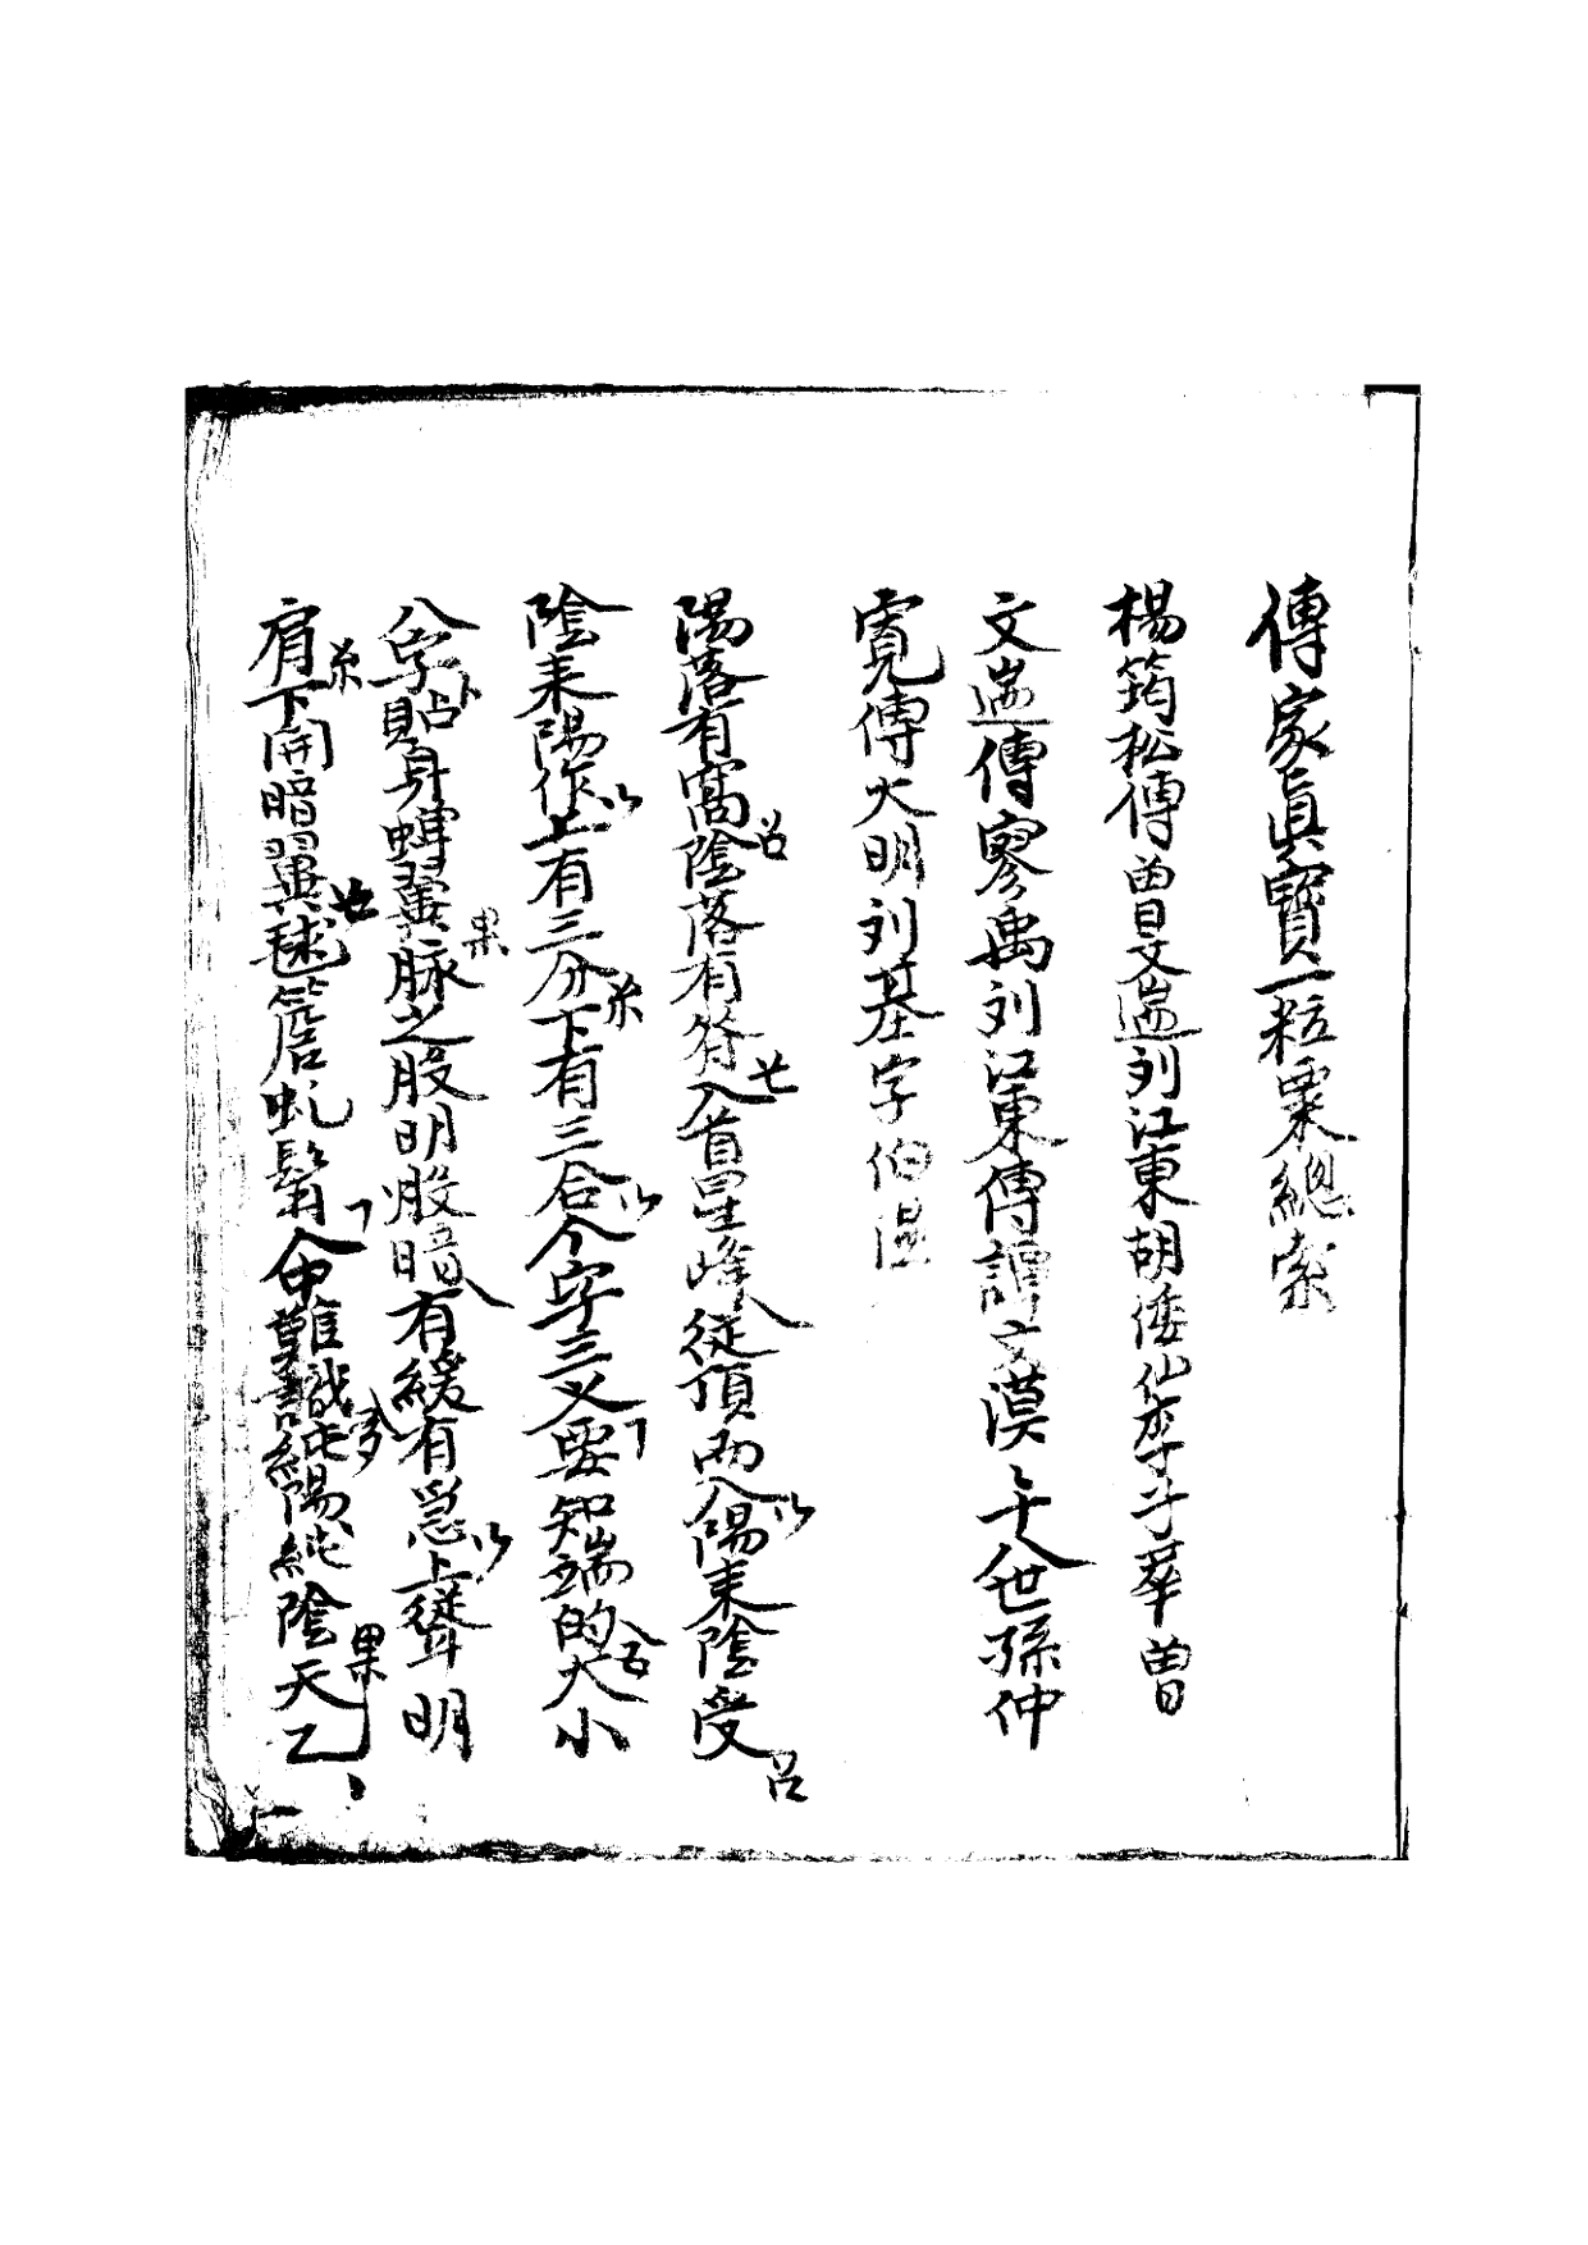 傳家眞寶一粒粟總索
楊筠松傳曾文遄刘江東胡倭仙李斗華曾
文遄傳寥禹刘江東傳譚文漠〻十八世孫仲
寛傳大明刘基字伯温
陽落有窩陰落有脊入首星峰從頂而入陽来陰受
陰来陽作上有三分下有三合个字三义要知端的大小
八字貼身蟬翼脉之股明股暗有緩有急上聳明
肩下開暗翼毬簷虬鬚命中難識純陽純陰天乙
一